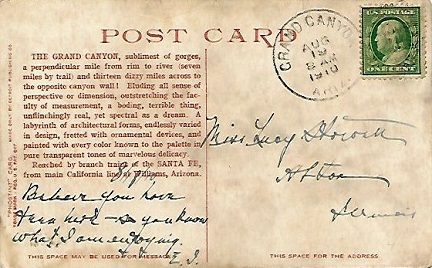 POST CARD
THE GRAND CANYON, sublimest of gorges,
a perpendicular mile from rim to river (seven
miles by trail) and thirteen dizzy miles across to
the opposite canyon wall! Eluding all sense of
perspective or dimension, outstretching the fac-
ulty of measurement, a boding, terrible thing,
unflinchingly real, yet spectral as a dream. A
labyrinth of architectural forms, endlessly varied
in design, fretted with ornamental devices, and
painted with every color known to the palette in
pure transparent tones of marvelous delicacy.
Reached by branch trains of the SANTA FE,
from main California line at Williams, Arizona.
"PHOSTINT" CARD
MADE ONLY BY DETROIT PUBLISHING CO.
Believe you have
been here you know
what I am enjoying.
E. J.
THIS SPACE MAY BE USED FOR MESSAGE
GRAND CANYON
AUG
19
8 AM
1910
ARIZ.
U.S. POSTAGE
ONE CENT
Miss Lucy
Alton
Illinois
THIS SPACE IS FOR THE ADDRESS